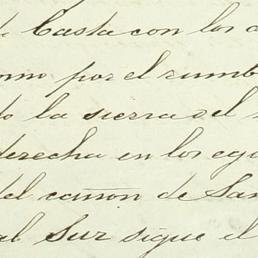 Casta con los
por el rumb
la sierra del
derecha en los eg
del cañon de San
al Sur sigue el